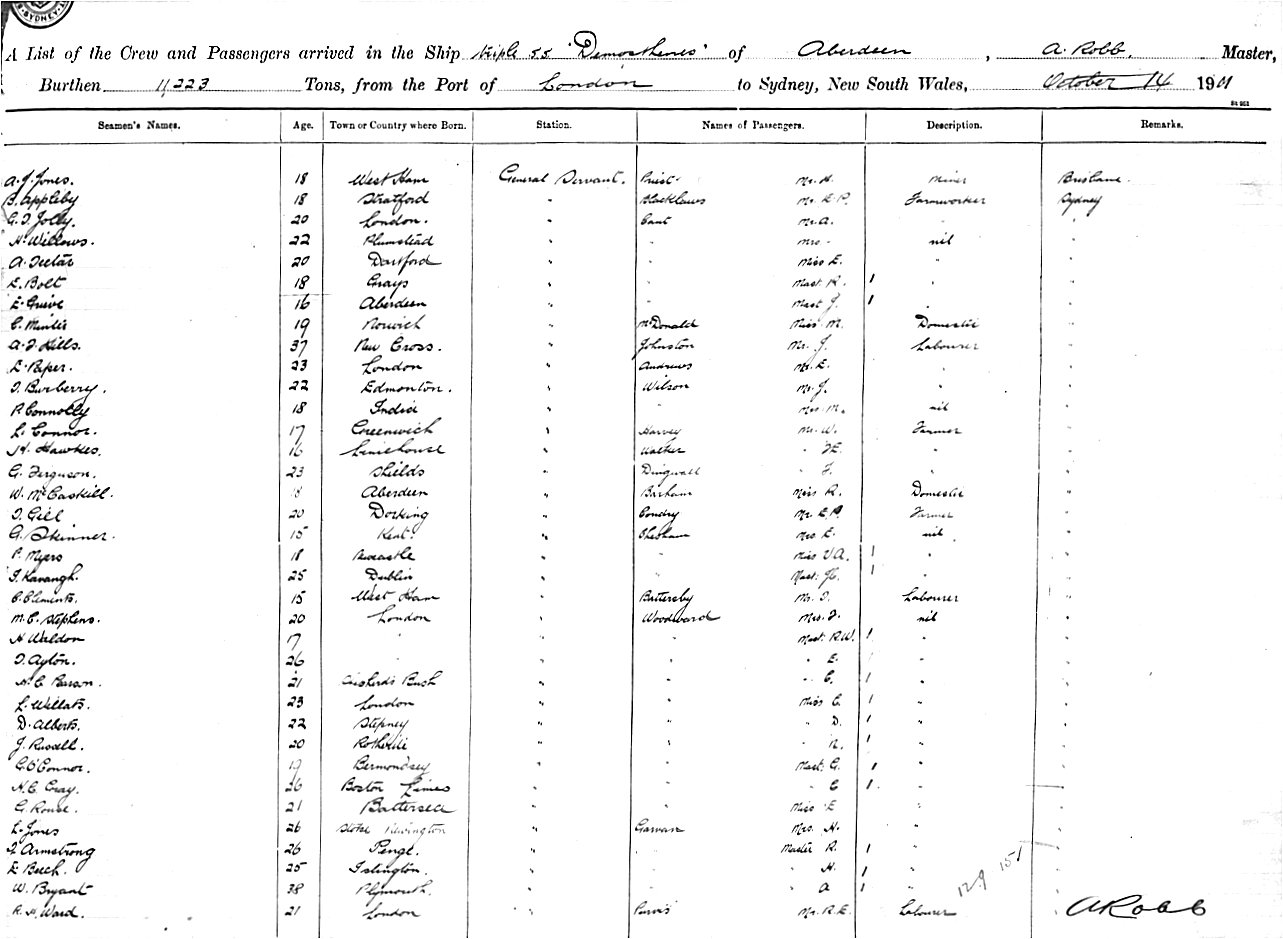 SYDNEY
A List of the Crew and Passengers arrived in the Ship triple ss "Demosthenes" of Aberdeen, A. Robb. Master,
Burthen 11,223 Tons, from the Port of London to Sydney, New South Wales, October 14 1901
St 951
Seamen's Names. Age. Town or Country where Born. Station. Names of Passengers. Description. Remarks.
A. J. Jones. 18 West Ham General Servant. Priest Mr. H. Miner Brisbane.
B. Appleby 18 Stratford " Mr. E.P. Farmworker Sydney
G. J. Jolly. 20 London. " Cant Mr. A. " "
H. Willows. 22 Plumstead " " Mrs - nil "
A. 20 Dartford " " Miss E. " "
E. Bolt 18 Grays " " Mast. R. 1 " "
E. Grieve 16 Aberdeen " " Mast J. 1 " "
C. 19 Norwich " McDonald Miss. M. Domestic "
A. J. Hills. 37 New Cross. " Johnston Mr. J. Labourer "
E. Piper. 23 London " Andrews Mr. E. " "
J. Burberry. 22 Edmonton. " Wilson Mr. J. " "
P. Connolly 18 India " " Mrs. M. nil "
L. Connor. 17 Greenwich " Harvey Mr. W. Farmer "
H. Hawkes. 16 Limehouse " Walker " J.E. " "
G. Ferguson. 23 Shields " Dingwall " J. " "
W. McCaskill. Aberdeen " Barham Miss R. Domestic "
J. Gill 20 Dorking " Condry Mr. E.P. Farmer "
G. Skinner. 15 Kent. " Chesham Mrs E. nil "
P. Myers 18 Newcastle " " Miss V.A. 1 " "
J. Kavangh. 25 Dublin " " Mast. 1 " "
C. Clements. 15 West Ham " Battersby Mr. J. Labourer "
M. C. Stephens. 20 London " Woodward Mrs. J. nil "
H Waldon " " " Mast. R.W. 1 " "
J. Ayton. 26 " " " " E. 1 " "
H. C. Parson. 21 Bush " " " C. 1 " "
L. Willats. 23 London " " Miss C. 1 " "
D. Alberts. 22 Stepney " " " D. 1 " "
J. Russell. 20 " " " 1 " "
G. O'Connor. Bermondsey " " Mast. G. 1 " "
H. C. Gray. 26 Boston " " " C 1 " "
G. Rouse. 21 Battersea " " Miss E " "
L. Jones 26 Stoke Newington " Garvan Mrs. H. " "
J. Armstrong 26 Penge. " " Master R. 1 " "
E Beech. 25 Islington. " " " H. 1 " "
W. Bryant 38 Plymouth. " " " A 1 "
R. H. Ward. 21 London " Purvis Mr. R.E. Labourer
129 151
A Robb